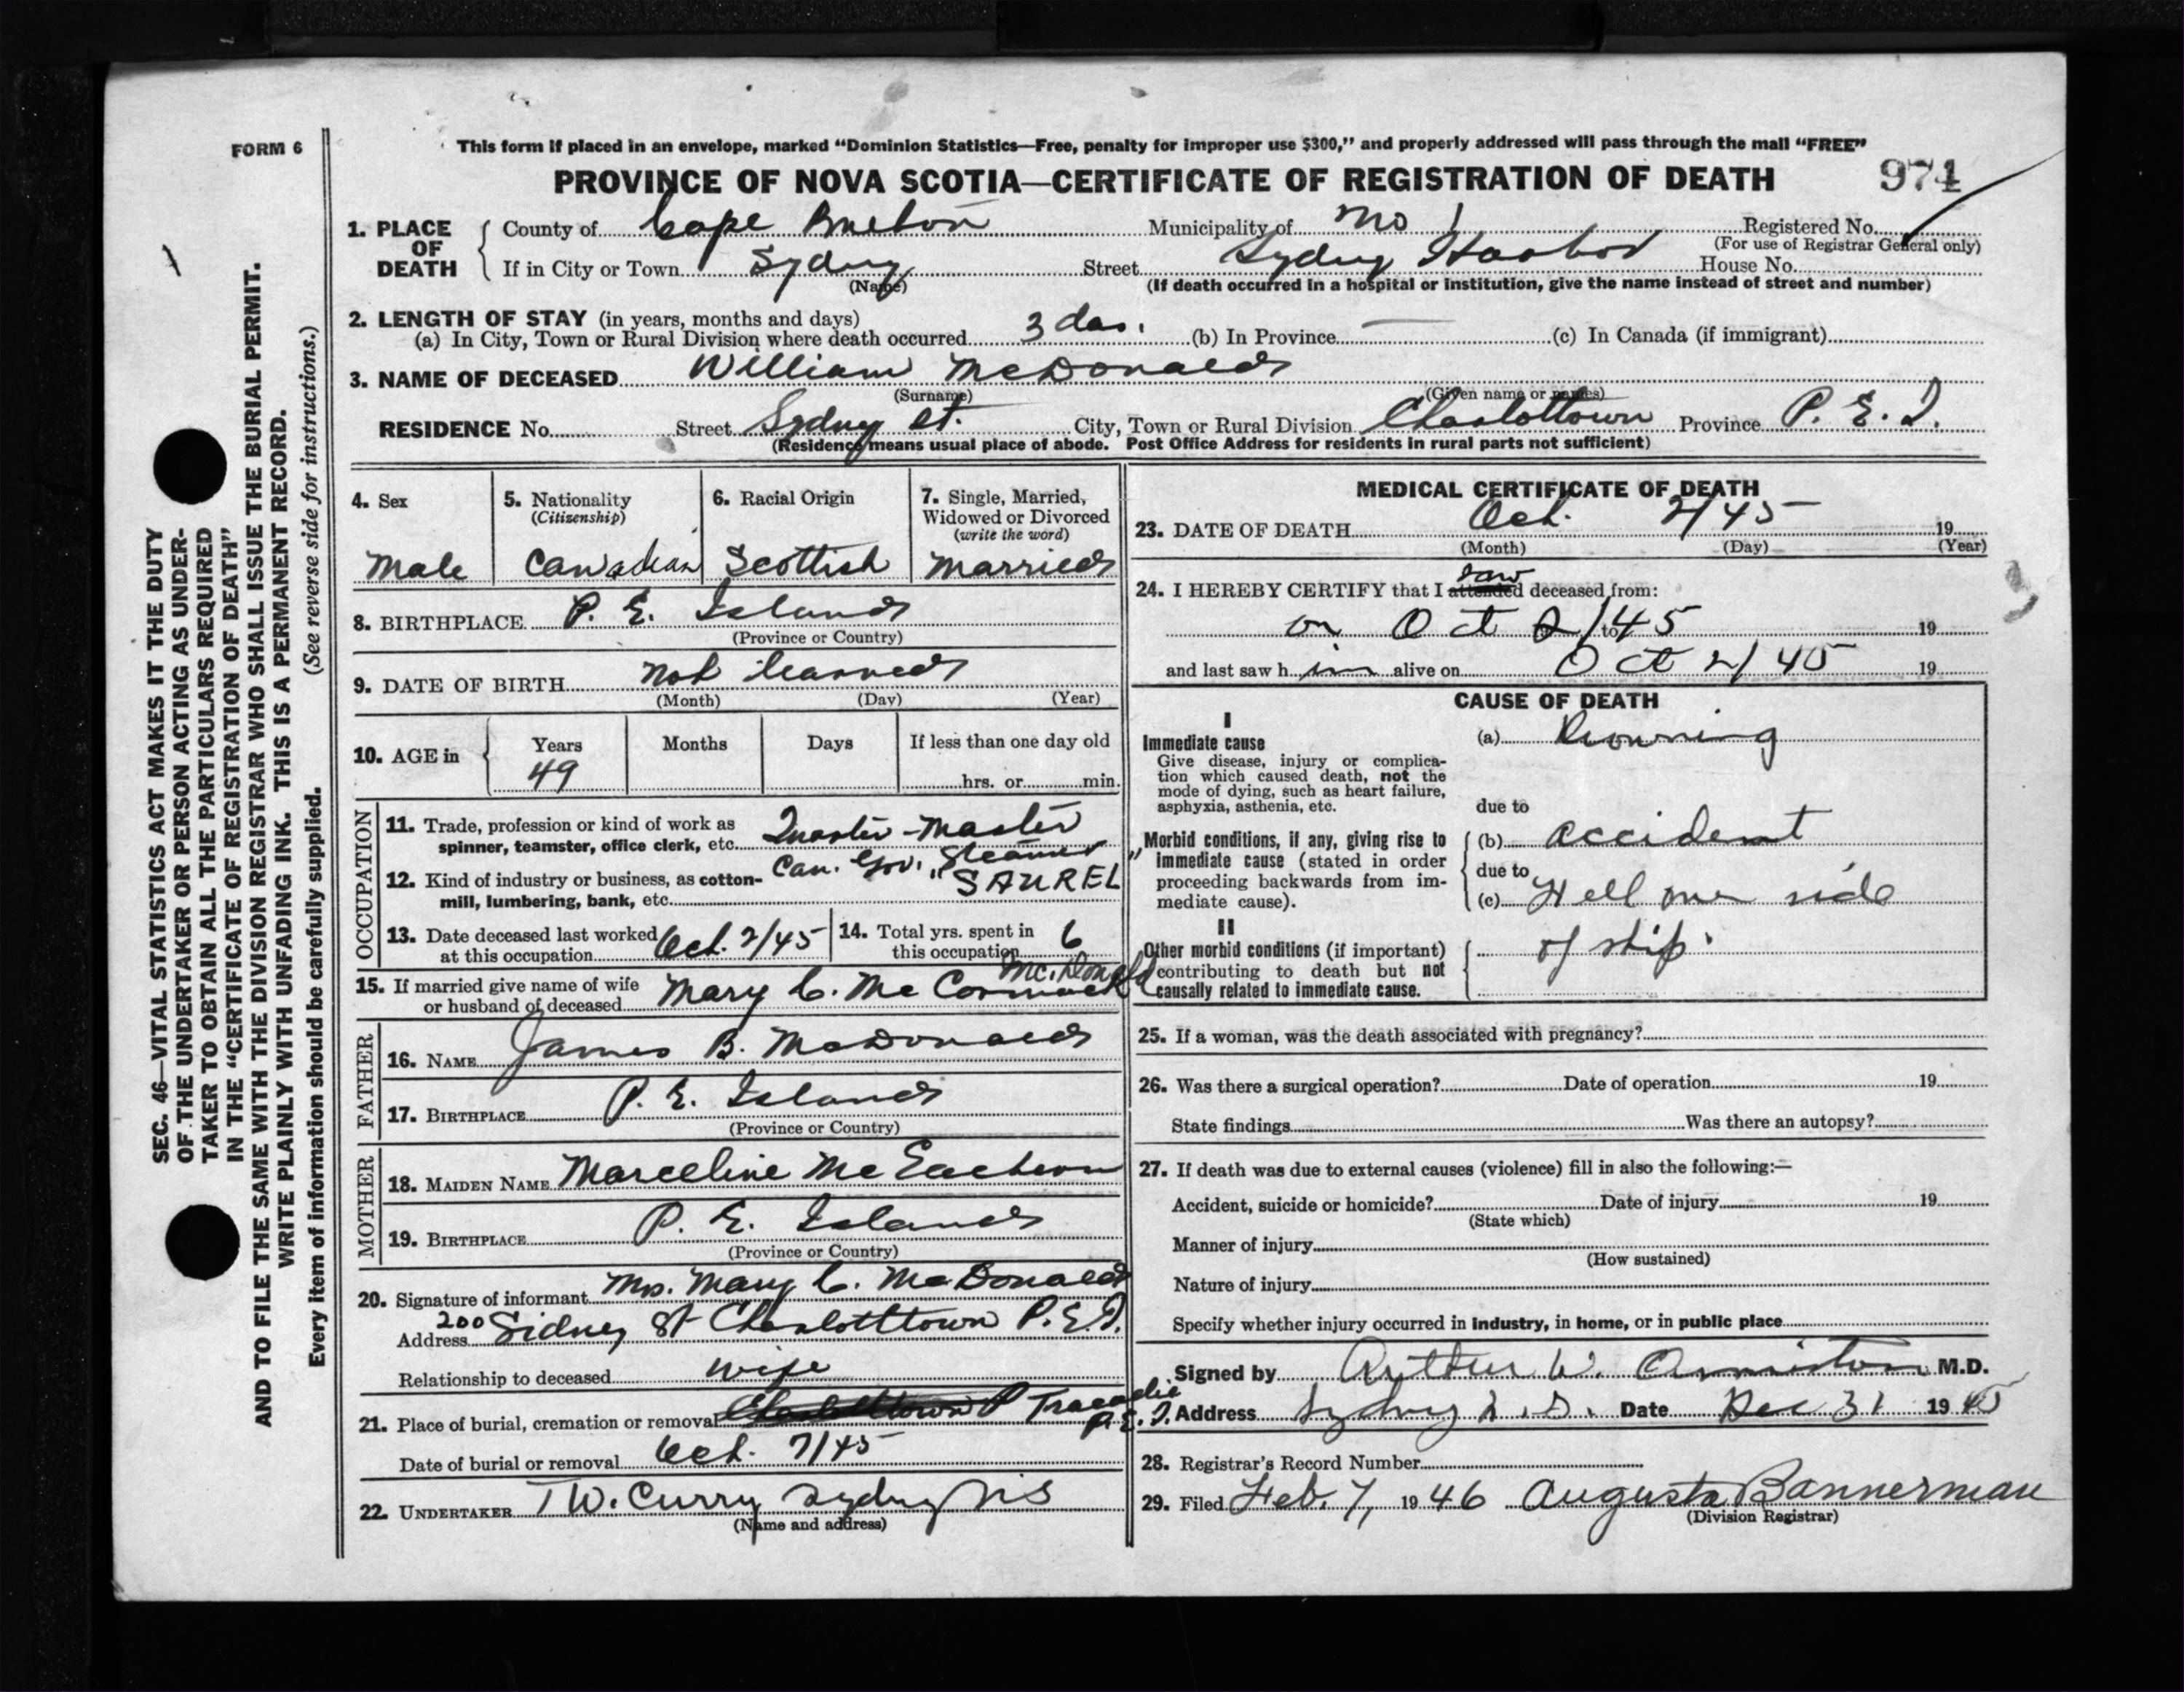 FORM 6
This form if placed in an envelope, marked "Dominion Statistics—Free, penalty for improper use $300," and properly addressed will pass through the mail "FREE"
PROVINCE OF NOVA SCOTIA—CERTIFICATE OF REGISTRATION OF DEATH 974
1. PLACE OF DEATH County of Cape Breton Municipality of No 1 Registered No.
(For use of Registrar General only)
If in City or Town Sydney Street Sydney Harbor House No.
(Name) (If death occurred in a hospital or institution, give the name instead of street and number)
2. LENGTH OF STAY (in years, months and days)
(a) In City, Town or Rural Division where death occurred 3 das. (b) In Province — (c) In Canada (if immigrant)
3. NAME OF DECEASED William McDonald
(Surname) (Given name or names)
RESIDENCE No. Street Sydney St. City, Town or Rural Division Charlottown Province P. E. I.
(Residence means usual place of abode. Post Office Address for residents in rural parts not sufficient)
4. Sex
Male
5. Nationality
(Citizenship)
Canadian
6. Racial Origin
Scottish
7. Single, Married,
Widowed or Divorced
(write the word)
Married
8. BIRTHPLACE P. E. Island
(Province or Country)
9. DATE OF BIRTH Not learned
(Month) (Day) (Year)
10. AGE in Years Months Days If less than one day old
49 hrs. or min.
OCCUPATION
11. Trade, profession or kind of work as
spinner, teamster, office clerk, etc. Quarter-Master
12. Kind of industry or business, as cotton-
mill, lumbering, bank, etc. Can. Gov. Steamer
"SAUREL"
13. Date deceased last worked
at this occupation Oct. 2/45
14. Total yrs. spent in
this occupation 6
15. If married give name of wife
or husband of deceased Mary C. McCormack McDonald
FATHER
16. NAME James B. McDonald
17. BIRTHPLACE P. E. Island
(Province or Country)
MOTHER
18. MAIDEN NAME Marceline McEachern
19. BIRTHPLACE P. E. Island
(Province or Country)
20. Signature of informant Mrs. Mary C. McDonald
Address 200 Sidney St Charlotttown P.E.I.
Relationship to deceased wife
21. Place of burial, cremation or removal Charlottetown P Tracadie
P.E.I.
Date of burial or removal Oct. 7/45
22. UNDERTAKER T W. Curry Sydney NS
(Name and address)
MEDICAL CERTIFICATE OF DEATH
23. DATE OF DEATH Oct. 2/45 19
(Month) (Day) (Year)
24. I HEREBY CERTIFY that I attended saw deceased from:
on Oct 2/45 to 19
and last saw h im alive on Oct 2/45 19
CAUSE OF DEATH
I
Immediate cause
Give disease, injury or complica-
tion which caused death, not the
mode of dying, such as heart failure,
asphyxia, asthenia, etc.
(a) Drowning
due to
Morbid conditions, if any, giving rise to
immediate cause (stated in order
proceeding backwards from im-
mediate cause).
(b) accident
due to
(c) Fell over side
II
Other morbid conditions (if important)
contributing to death but not
causally related to immediate cause.
of ship.
25. If a woman, was the death associated with pregnancy?
26. Was there a surgical operation? Date of operation 19
State findings Was there an autopsy?
27. If death was due to external causes (violence) fill in also the following:—
Accident, suicide or homicide? Date of injury 19
(State which)
Manner of injury
(How sustained)
Nature of injury
Specify whether injury occurred in industry, in home, or in public place
Signed by Arthur W. Ormiston M.D.
Address Sydney N.S. Date Dec 31 1945
28. Registrar's Record Number
29. Filed Feb. 7, 1946 Augusta Bannerman
(Division Registrar)
SEC. 46—VITAL STATISTICS ACT MAKES IT THE DUTY
OF THE UNDERTAKER OR PERSON ACTING AS UNDER-
TAKER TO OBTAIN ALL THE PARTICULARS REQUIRED
IN THE "CERTIFICATE OF REGISTRATION OF DEATH"
AND TO FILE THE SAME WITH THE DIVISION REGISTRAR WHO SHALL ISSUE THE BURIAL PERMIT.
WRITE PLAINLY WITH UNFADING INK. THIS IS A PERMANENT RECORD.
Every item of information should be carefully supplied. (See reverse side for instructions.)